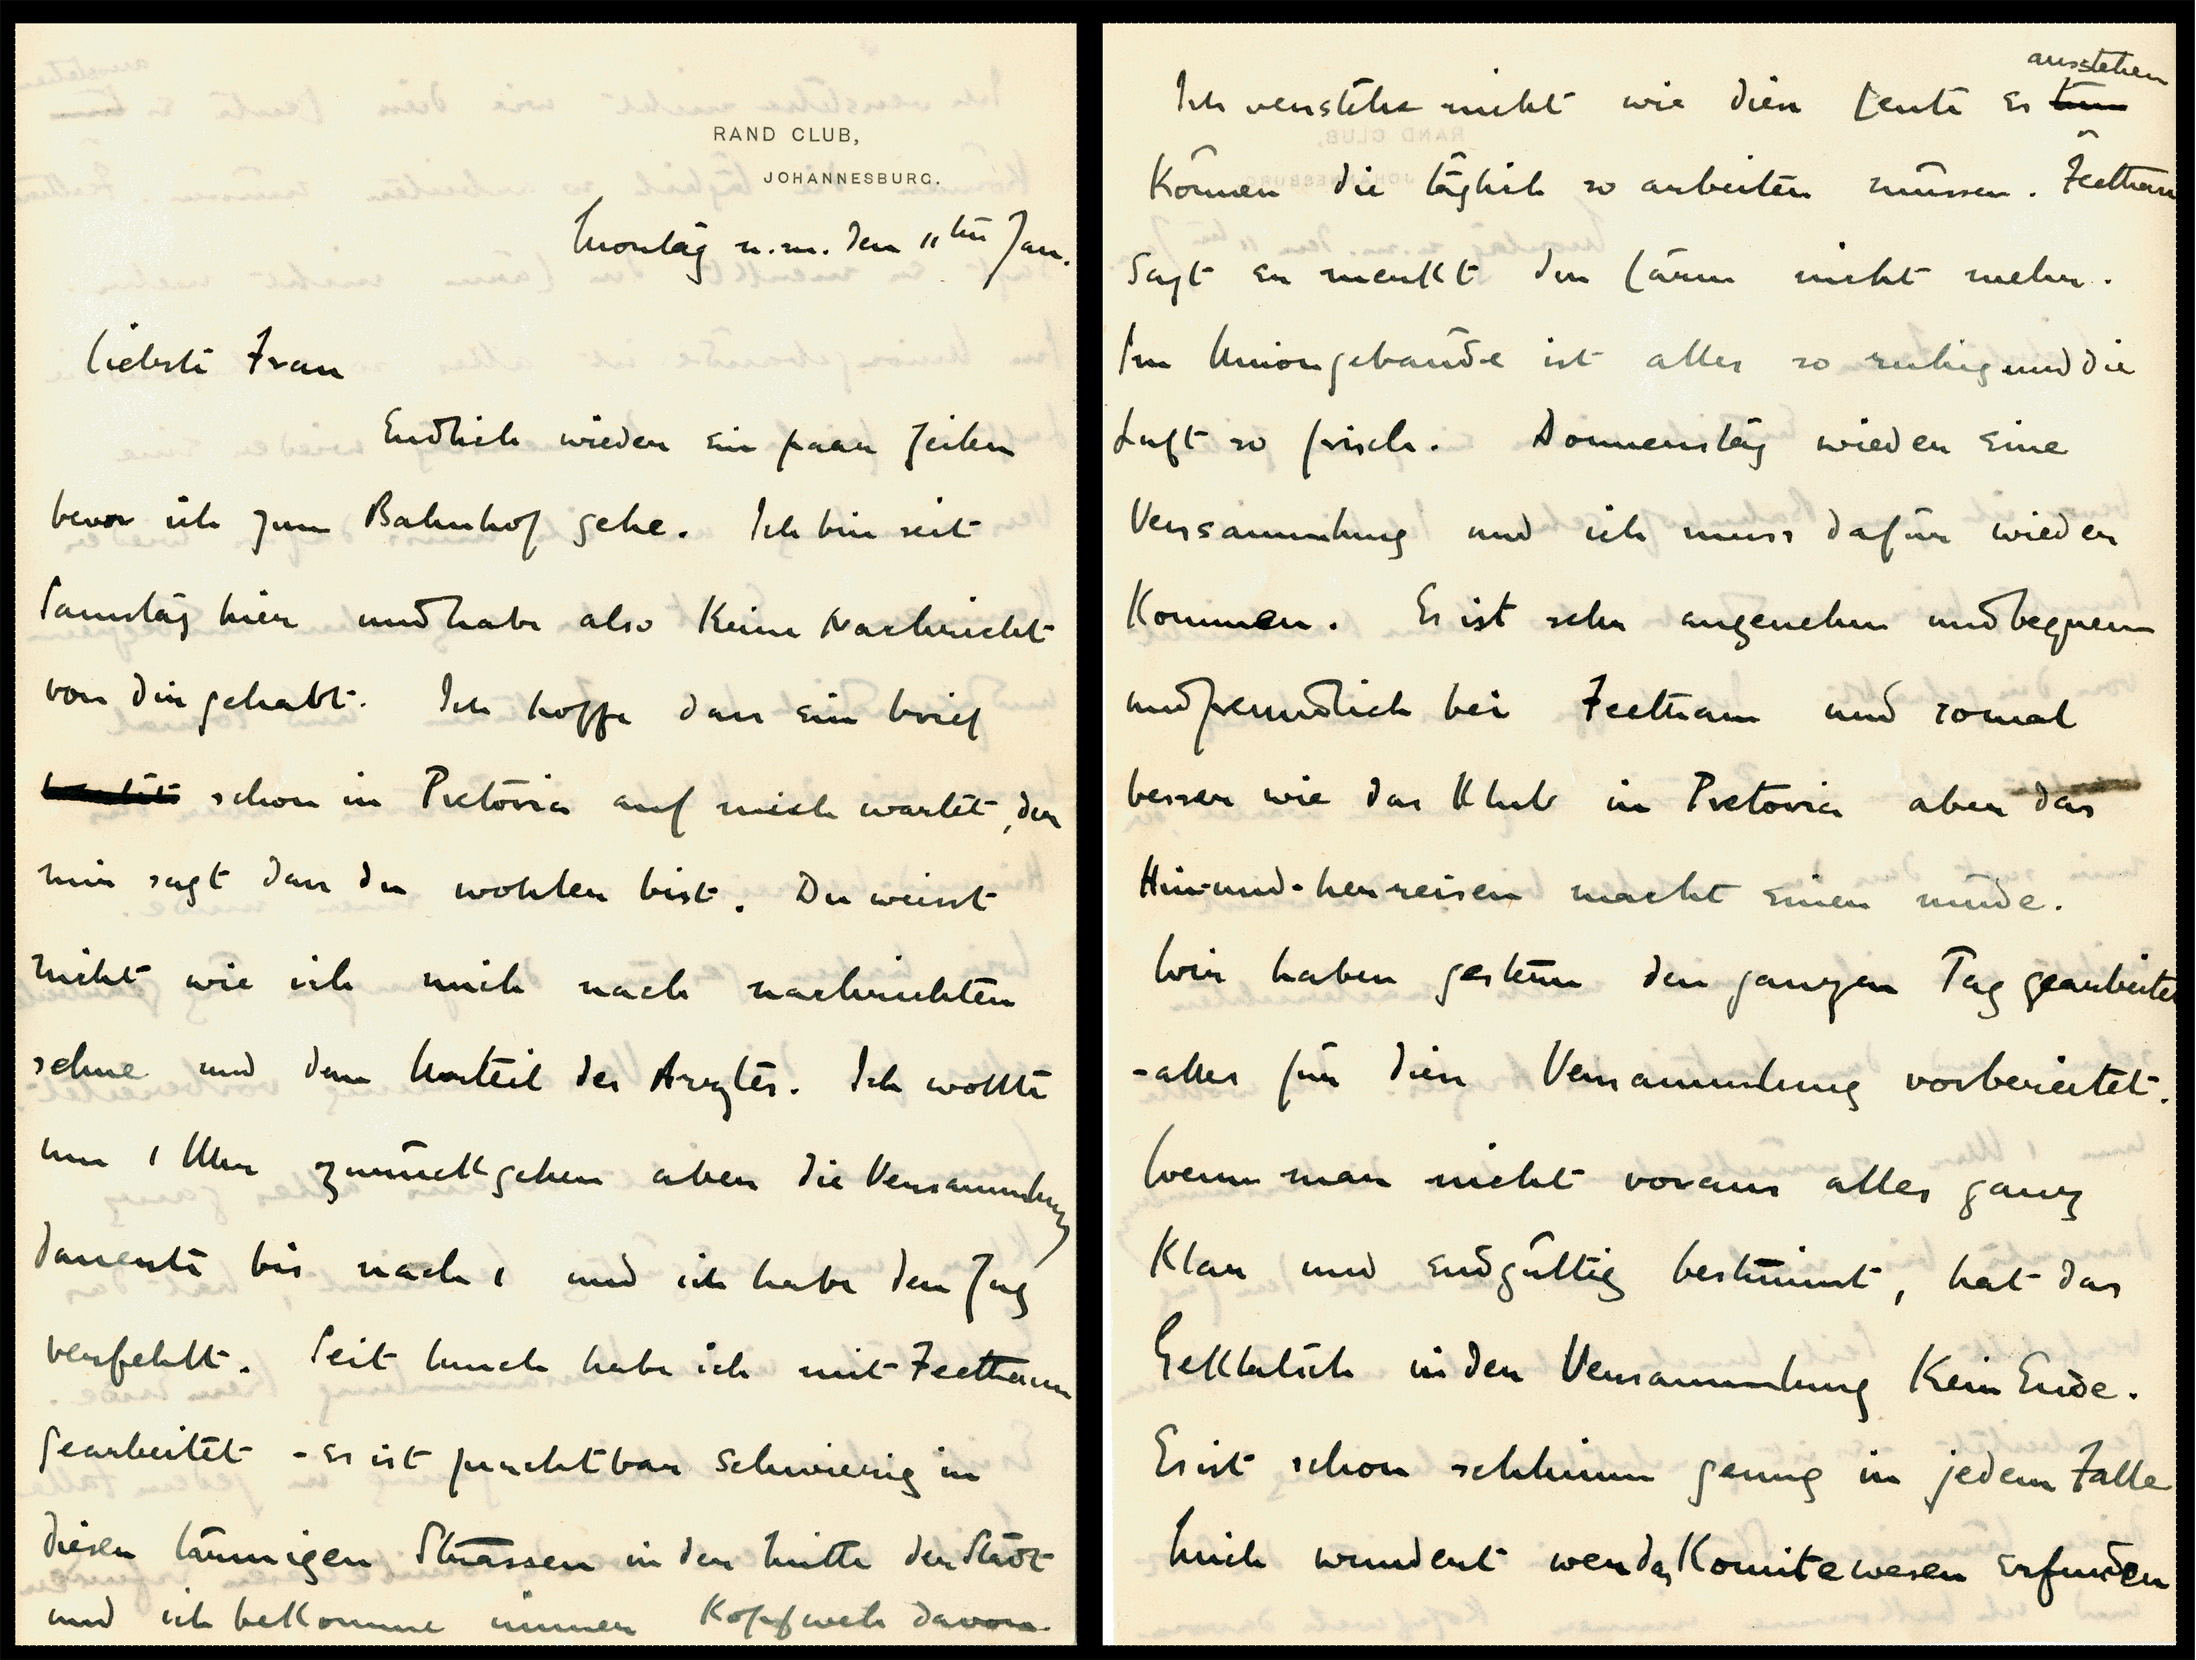 RAND CLUB,
JOHANNESBURG.
Montag n.m. den 11ten Jan.
Liebste Frau
Endlich wieder ein paar Zeilen
bevor ich zum Bahnhof gehe. Ich bin seit
Samstag hier und habe also keine Nachricht
von dir gehabt. Ich hoffe dass ein brief
schon in Pretoria auf mich wartet, der
mir sagt dass du wohler bist. Du weisst
nicht wie ich mich nach nachrichten
sehne und dem Urteil des Arztes. Ich wollte
um 1 Uhr zurückgehen aber die Versammlung
dauerte bis nach 1 und ich habe den Zug
verfehlt. Seit lunch habe ich mit Feetham
gearbeitet - es ist furchtbar schwierig in
diesen lärmigen Strassen in der Mitte der Stadt
und ich bekomme immer Kopfweh davon.
Ich verstehe nicht wie diese Leute es ausstehen
können die täglich so arbeiten müssen. Feetham
sagt er merkt den Lärm nicht mehr.
Im Uniongebäude ist alles so ruhig und die
Luft so frisch. Donnerstag wieder eine
Versammlung und ich muss dafür wieder
kommen. Es ist sehr angenehm und bequem
und freundlich bei Feetham und 10mal
besser wie das Klub in Pretoria aber das
Hin-und-herreisen macht einen müde.
Wir haben gestern den ganzen Tag gearbeitet
- alles für diese Versammlung vorbereitet.
Wenn man nicht voraus alles ganz
klar und endgültig bestimmt, hat das
Geklatsch in der Versammlung kein Ende.
Es ist schon schlimm genug in jedem Falle
Mich wundert wer das Komitewesen erfunden